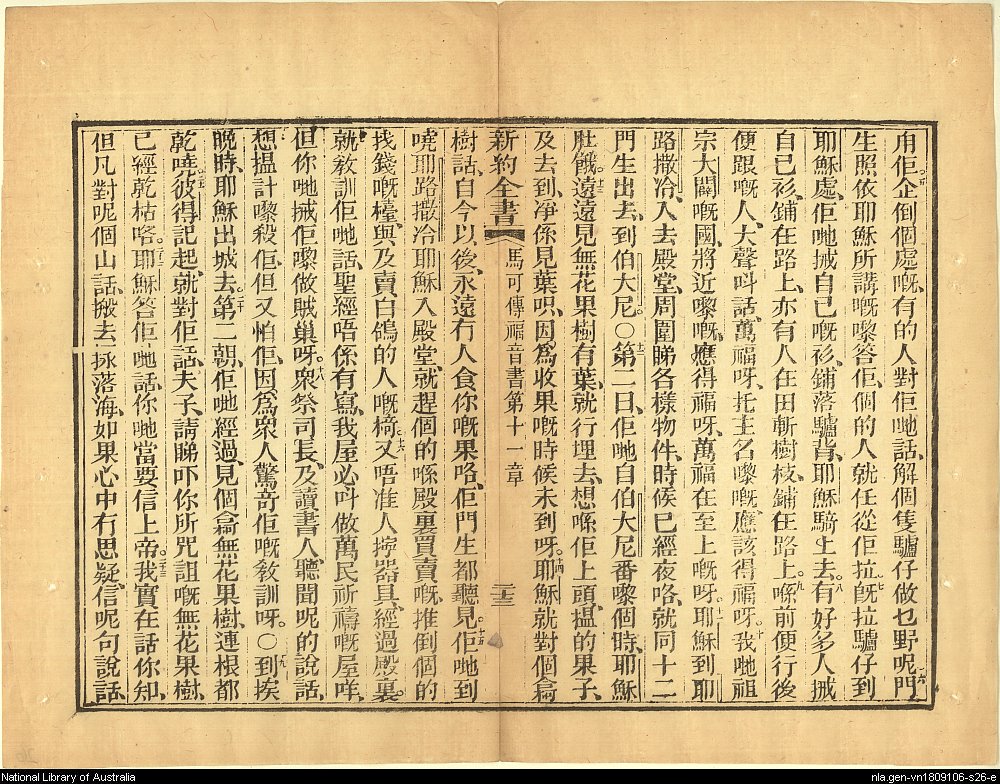 用佢企倒個處嘅有的人對佢哋話、解個隻驢仔做乜野呢門
生照依耶穌所講嘅嚟答佢、個的人就任從佢拉。旣拉驢仔到
耶穌處、佢哋搣自己嘅衫、鋪落驢背、耶穌騎上去。有好多人搣
自己衫、鋪在路上、亦有人在田斬樹枝、鋪在路上。喺前便行後
便跟嘅人、大聲叫話、萬福呀、托主名嚟嘅、應該得福呀。我哋祖
宗大闢嘅國、將近嚟嘅、應得福呀、萬福在至上嘅呀。耶穌到耶
路撒冷、入去殿堂、周圍睇各樣物件、時候已經夜咯、就同十二
門生出去、到伯大尼。〇第二日、佢哋自伯大尼番嚟個時、耶穌
肚餓。遠遠見無花果樹有葉、就行埋去、想喺佢上頭、搵的果子、
及去到、凈係見葉呮、因爲收果嘅時候未到呀。耶穌就對個䓤
新約全書 馬可傳福音書第十一章 二十三
樹話、自今以後、永遠冇人食你嘅果咯、佢門生都聽見。佢哋到
嘵耶路撒冷、耶穌入殿堂、就趕個的喺殿裏買賣嘅、推倒個的
找錢嘅檯、與及賣白鴿的人嘅椅。又唔准人擰器具、經過殿裏。
就教訓佢哋話、聖經唔係有寫、我屋必叫做萬民祈禱嘅屋咩、
但你哋搣佢嚟做賊巢呀。衆祭司長、及讀書人、聽聞呢的說話、
想搵計嚟殺佢、但又怕佢、因爲衆人驚奇佢嘅教訓呀。〇到挨
晚時、耶穌出城去。第二朝、佢哋經過、見個䓤無花果樹、連根都
乾嘵。彼得記起、就對佢話、夫子、請睇吓你所咒詛嘅無花果樹、
已經乾枯咯。耶穌答佢哋話、你哋當要信上帝。我實在話你知、
但凡對呢個山話、搬去、抌落海、如果心中冇思疑、信呢句說話、
National Library of Australia
nla.gen-vn1809106-s26-e